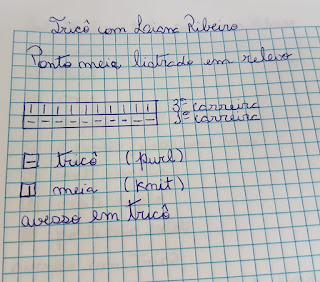 Tricô com Laiana Ribeiro
Ponto meia listrado em relevo
3ª carreira
1ª carreira
tricô (purl)
meia (knit)
avesso em tricô